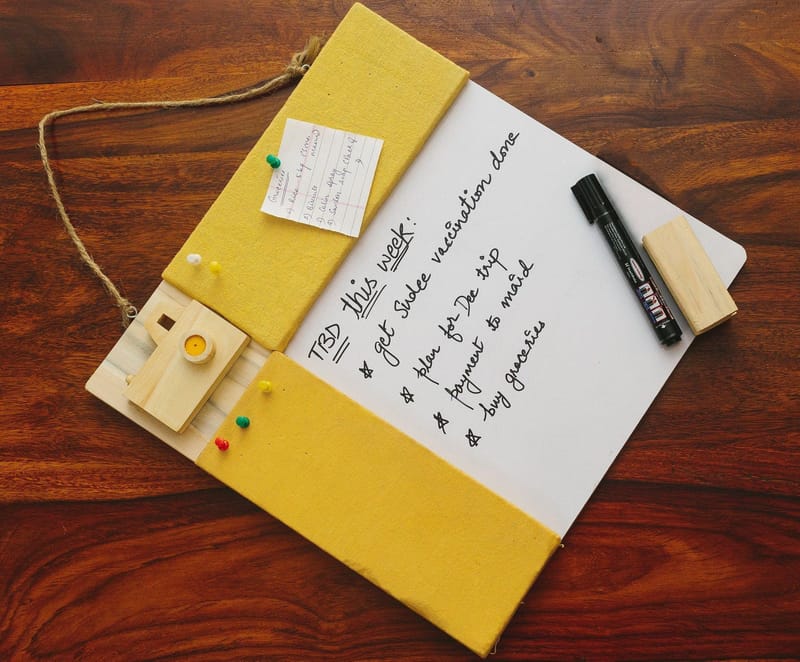 TBD this week:
* get Sudee vaccination done
* plan for Dec trip
* payment to maid
* buy groceries
Groceries
2) Biscuits